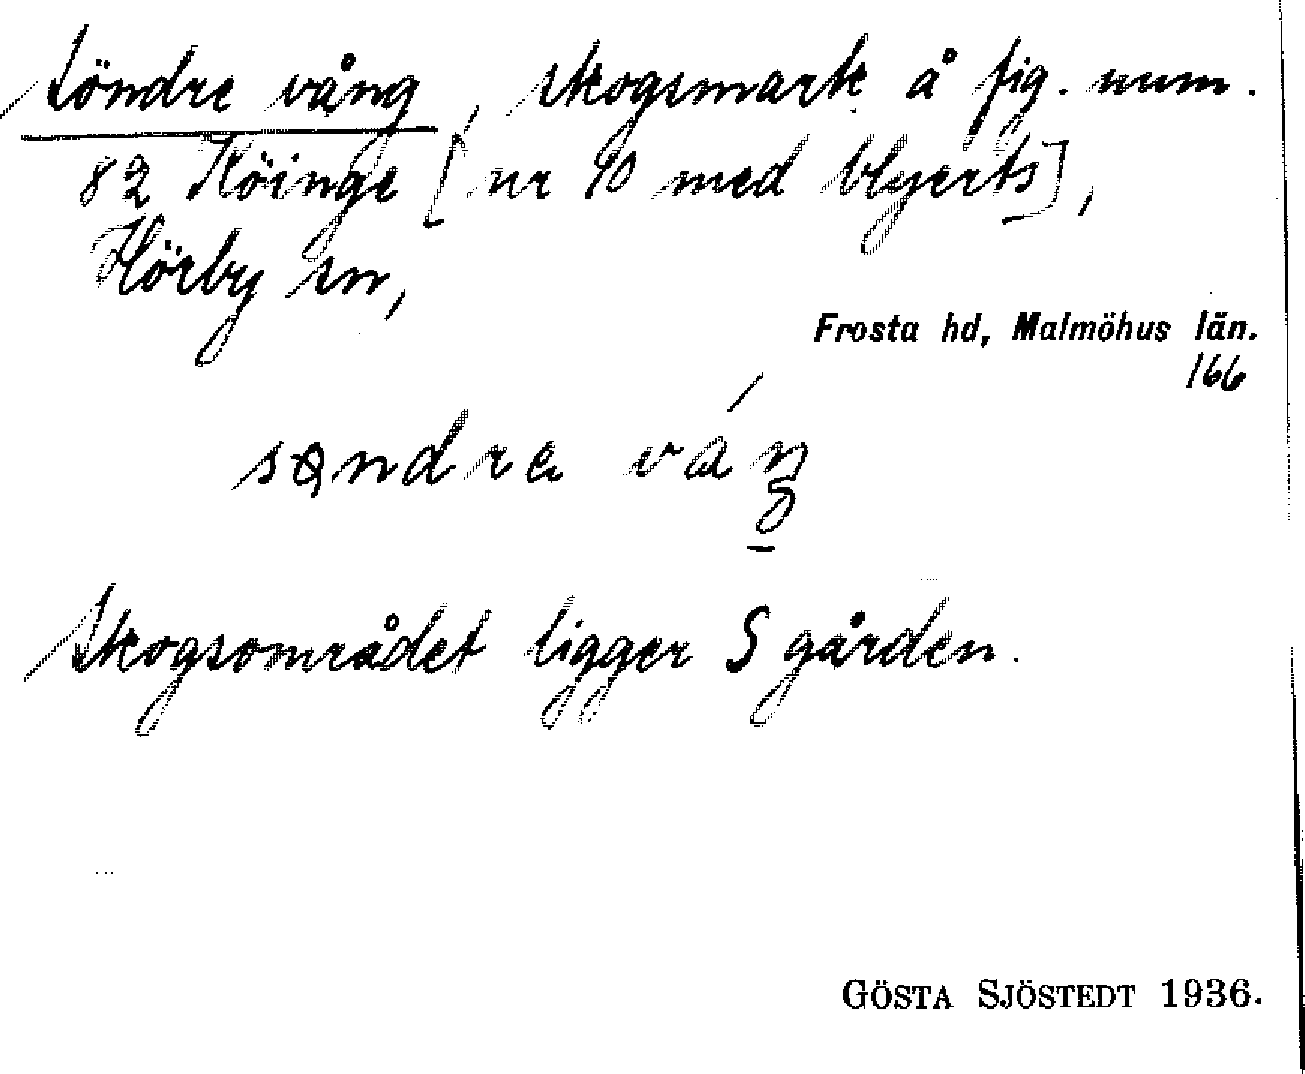 Söndre vång, skogsmark å fig. num.
82 Köinge [nr 90 med blyerts],
Hörby sn,
Frosta hd, Malmöhus län.
166
søndra váŋ
Skogsområdet ligger S gården.
GÖSTA SJÖSTEDT 1936.